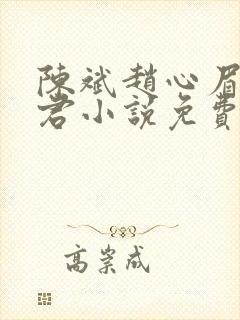 陳斌趙心眉
君小說免費
高崇成